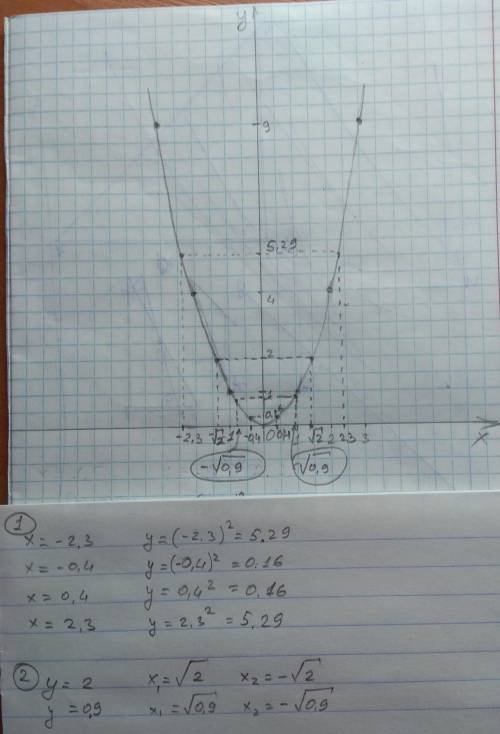 y
9
5,29
4
2
1
-2,3 -√2 -1 -0,4 0 0,4 1 √2 2 2,3 3 X
-√0,9 √0,9
1
x = -2,3 y = (-2,3)² = 5.29
x = -0,4 y = (-0,4)² = 0.16
x = 0,4 y = 0,4² = 0.16
x = 2,3 y = 2,3² = 5,29
2 y = 2 x₁ = √2 x₂ = -√2
y = 0,9 x₁ = √0,9 x₂ = -√0,9